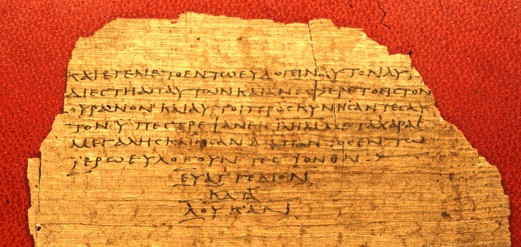 ΚΑΙΕΓΕΝΕΤΟΕΝΤΩΕΥΛΟΓΕΙΝΑΥΤΟΝΑΥ
ΔΙΕϹΤΗΑΠΑΥΤΩΝΚΑΙΑΝΕΦΕΡΕΤΟΕΙϹΤΟΝ
ΟΥΡΑΝΟΝΚΑΙΑΥΤΟΙΠΡΟϹΚΥΝΗϹΑΝΤΕϹΑΥ
ΤΟΝΥΠΕϹΤΡΕΨΑΝ ΜΕΤΑΧΑΡΑϹ
ΜΕΓΑΛΗϹΚΑΙΗϹΑΝΔΙΑΠΑΝΤΟϹΕΝΤΩ
ΙΕΡΩΕΥΛΟΓΟΥΝΤΕϹΤΟΝΘΝ
ΕΥΑΓΓΕΛΙΟΝ
ΚΑΤΑ
ΛΟΥΚΑΝ